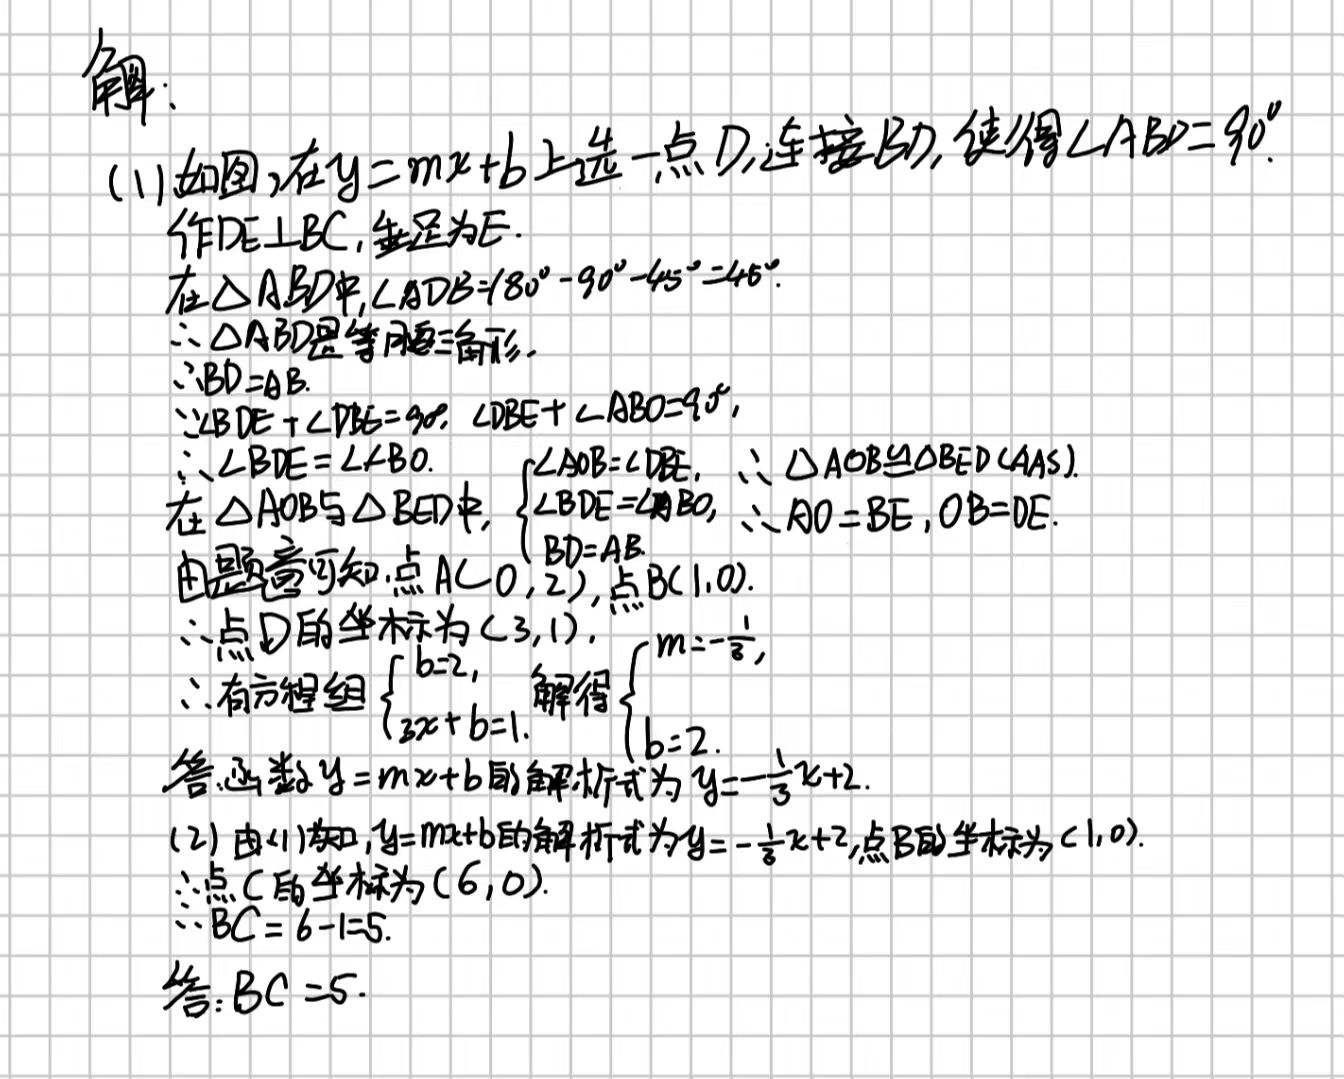 解:
(1)如图,在y=mx+b上选一点D,连接BD,使得∠ABD=90°.
作DE⊥BC,垂足为E.
在△ABD中,∠ADB=180°-90°-45°=45°.
∴△ABD是等腰三角形.
∴BD=AB.
∵∠BDE+∠DBE=90°,∠DBE+∠ABO=90°,
∴∠BDE=∠ABO.
在△AOB与△BED中,{∠AOB=∠DBE, ∠BDE=∠ABO, BD=AB. ∴△AOB≌△BED(AAS). ∴AO=BE,OB=DE.
由题意可知,点A(0,2),点B(1,0).
∴点D的坐标为(3,1).
∴有方程组{b=2, 3x+b=1. 解得{m=-1/3, b=2.
答:函数y=mx+b的解析式为y=-1/3x+2.
(2)由(1)知,y=mx+b的解析式为y=-1/3x+2,点B的坐标为(1,0).
∴点C的坐标为(6,0).
∴BC=6-1=5.
答:BC=5.